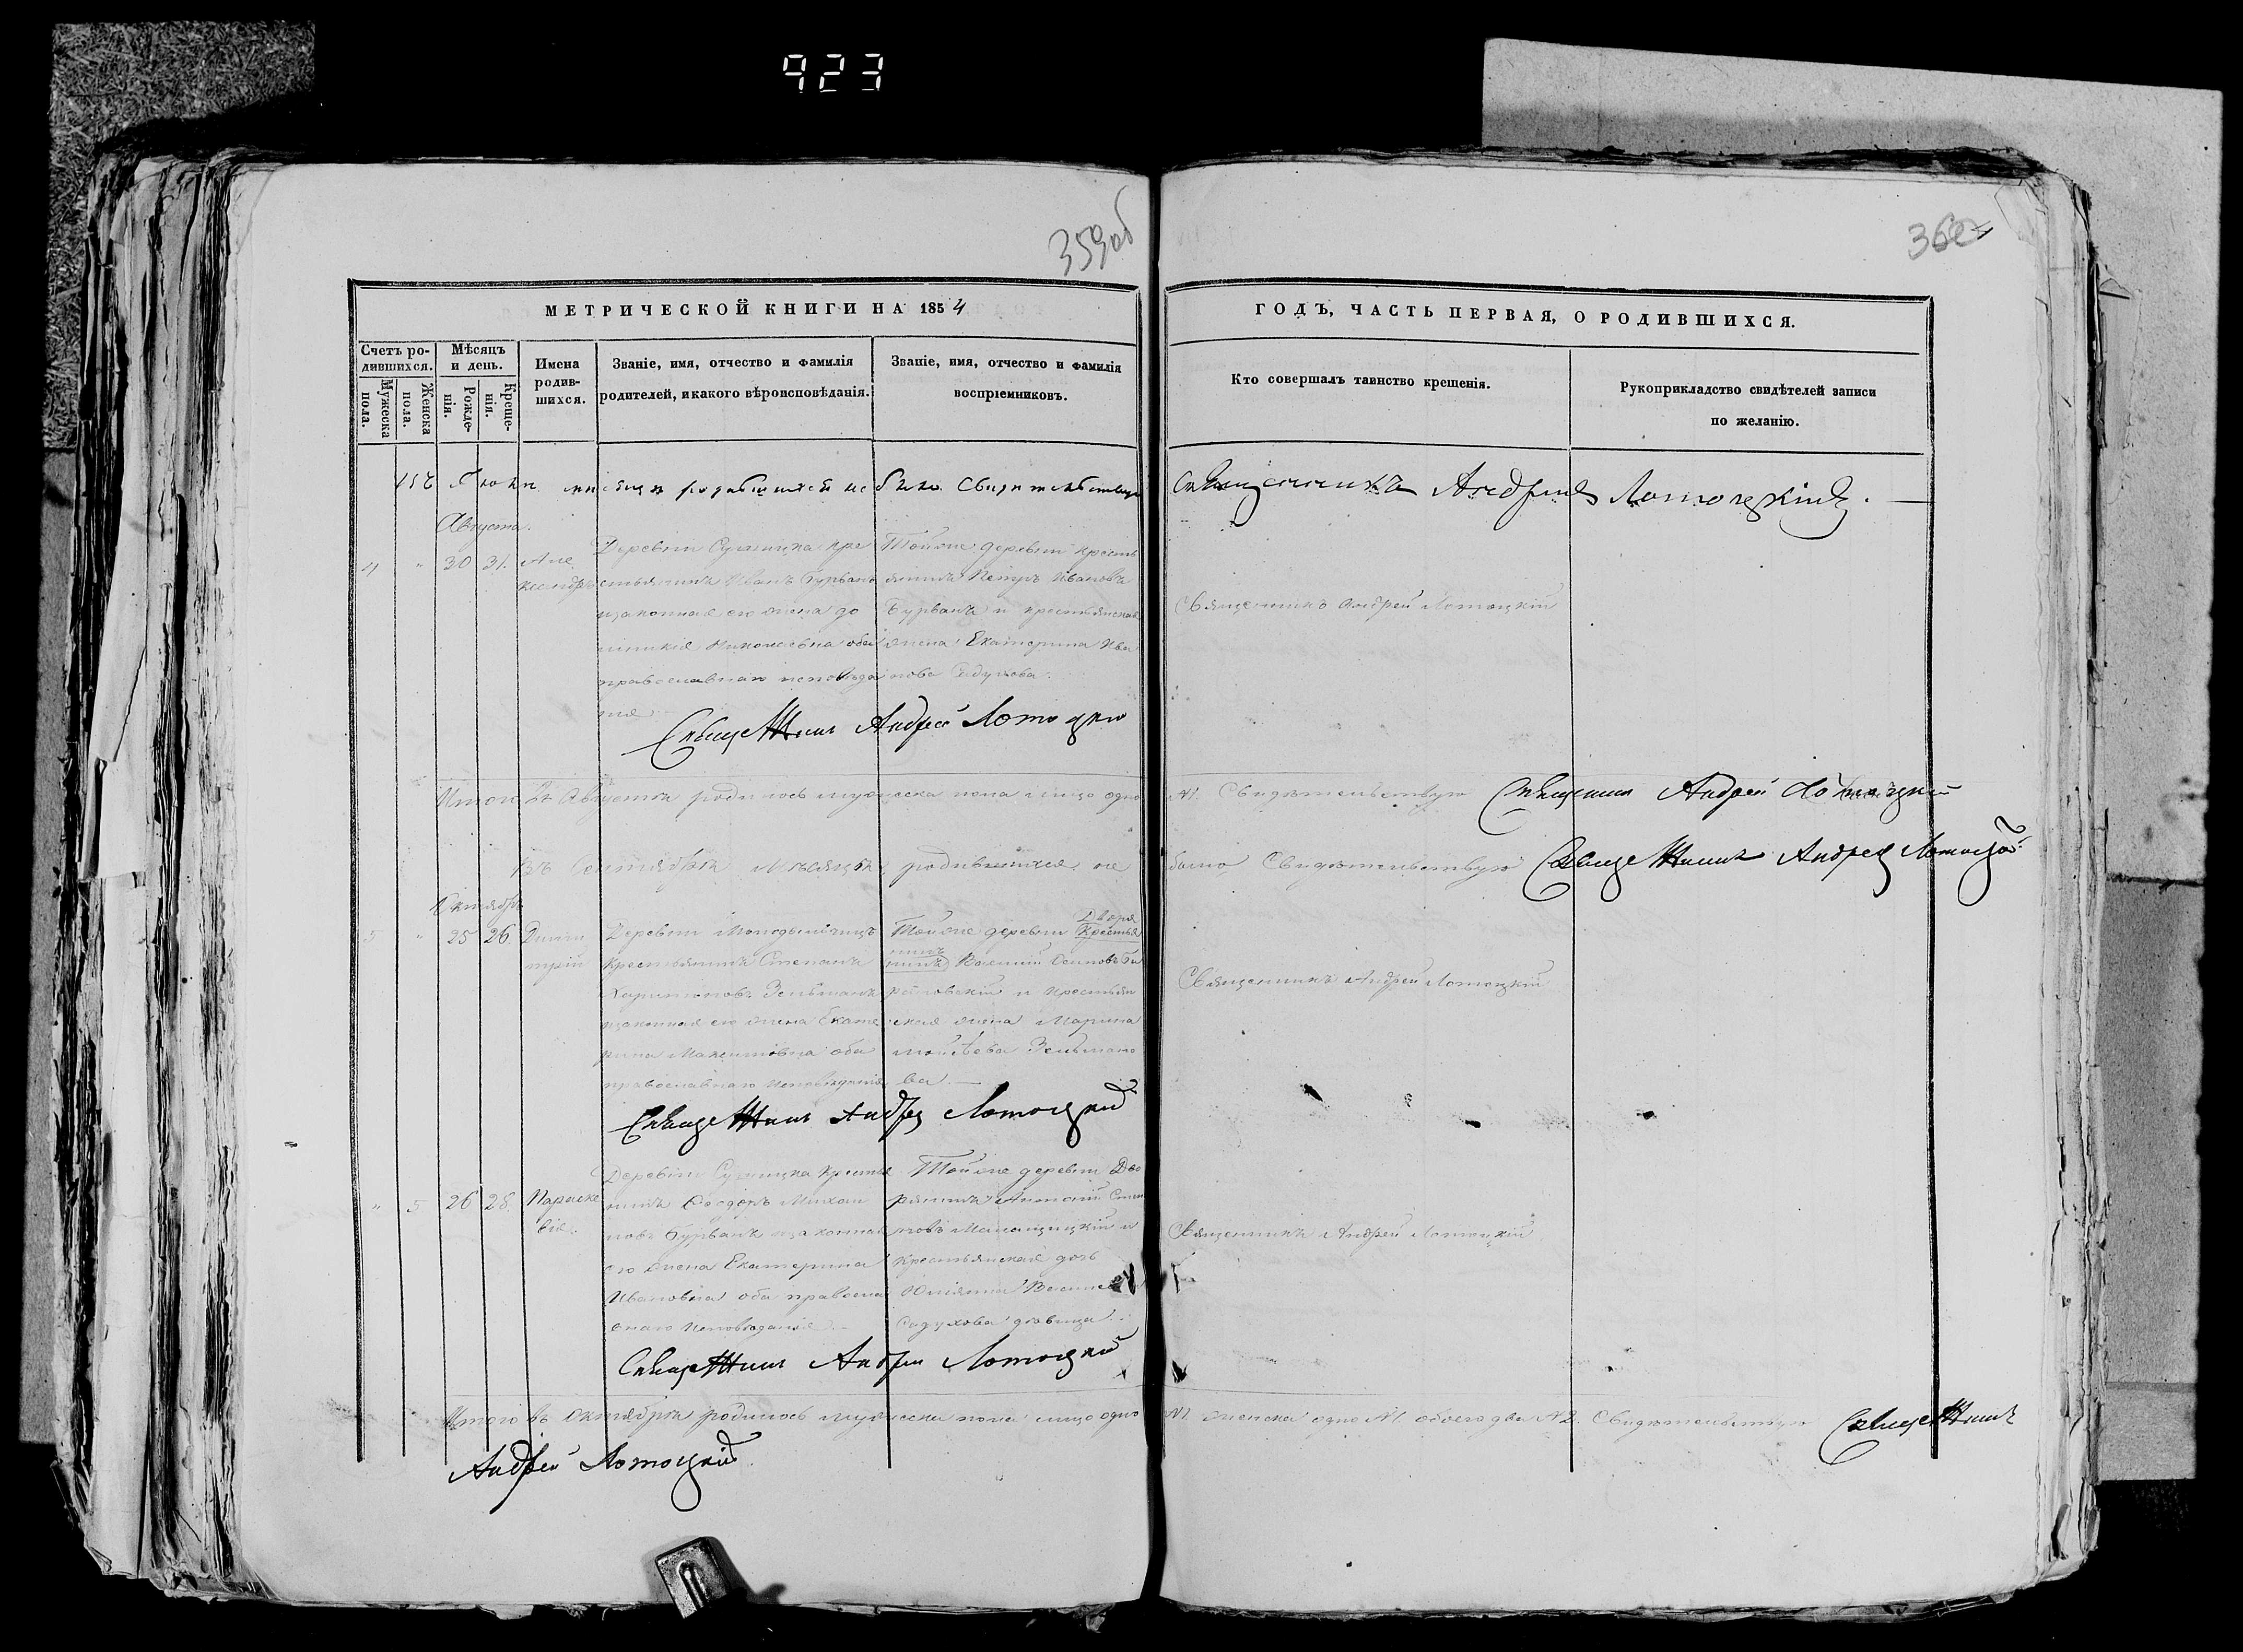 923
359об
360
МЕТРИЧЕСКОЙ КНИГИ НА 1854
ГОДЪ, ЧАСТЬ ПЕРВАЯ, О РОДИВШИХСЯ.
Счетъ ро-
дившихся.
Мужеска
пола.
Женска
пола.
Мѣсяцъ
и день.
Рожде-
нія.
Креще-
нія.
Имена
родив-
шихся.
Званіе, имя, отчество и фамилія
родителей, и какого вѣроисповѣданія.
Званіе, имя, отчество и фамилія
воспріемниковъ.
Кто совершалъ таинство крещенія.
Рукоприкладство свидѣтелей записи
по желанію.
родившихся не было Свидетельствую Священникъ Андрей Лотоцкій.
Августа.
4 " 30 31.
Але
ксандръ
Деревни кре
стьянинъ Иванъ Бурванъ
изаконная его жена до
миникія обои
православнаго исповѣда
нія
Тойже деревни кресть
янинъ Петръ Ивановъ
Бурванъ и крестьянская
жена Екатерина Ива
нова Садукова.
Священникъ Андрей Лотоцкій
Священникъ Андрей Лотоцкій
Итого въ Августѣ родилось мужеска пола лицо одно
№1. Свидѣтельствую Священникъ Андрей Лотоцкій
Въ Сентябрѣ Мѣсяцѣ родившихся не
было Свидѣтельствую Священникъ Андрей Лотоцкій
Октября
5 " 25 26.
Дими
трій
Деревни
Крестьянинъ Степанъ
Харитоновъ Зельманъ
изаконная его жена Екате
рина Максимовна оба
православнаго исповѣданія
Дворя
Тойже деревни Крестья
нинъ
нинъ Василій Осиповъ
и крестьян
ская жена Марина
Зельмано
ва. —
Священникъ Андрей Лотоцкій
Священникъ Андрей Лотоцкій
" 5 26 28.
Параске
вія.
Деревни крестья
нинъ Феодоръ Михай
ловъ Бурванъ изаконная
его жена Екатерина
Ивановна оба правосла
внаго исповѣданія. —
Тойже деревни Дво
рянинъ
и
крестьянская дочь
Юліянна
Садукова дѣвица.
Священникъ Андрей Лотоцкій
Священникъ Андрей Лотоцкій
Итого въ Октябрѣ родилось мужеска пола лицо одно
№1 женска одно №1 обоего два №2. Свидѣтельствую Священникъ
Андрей Лотоцкій